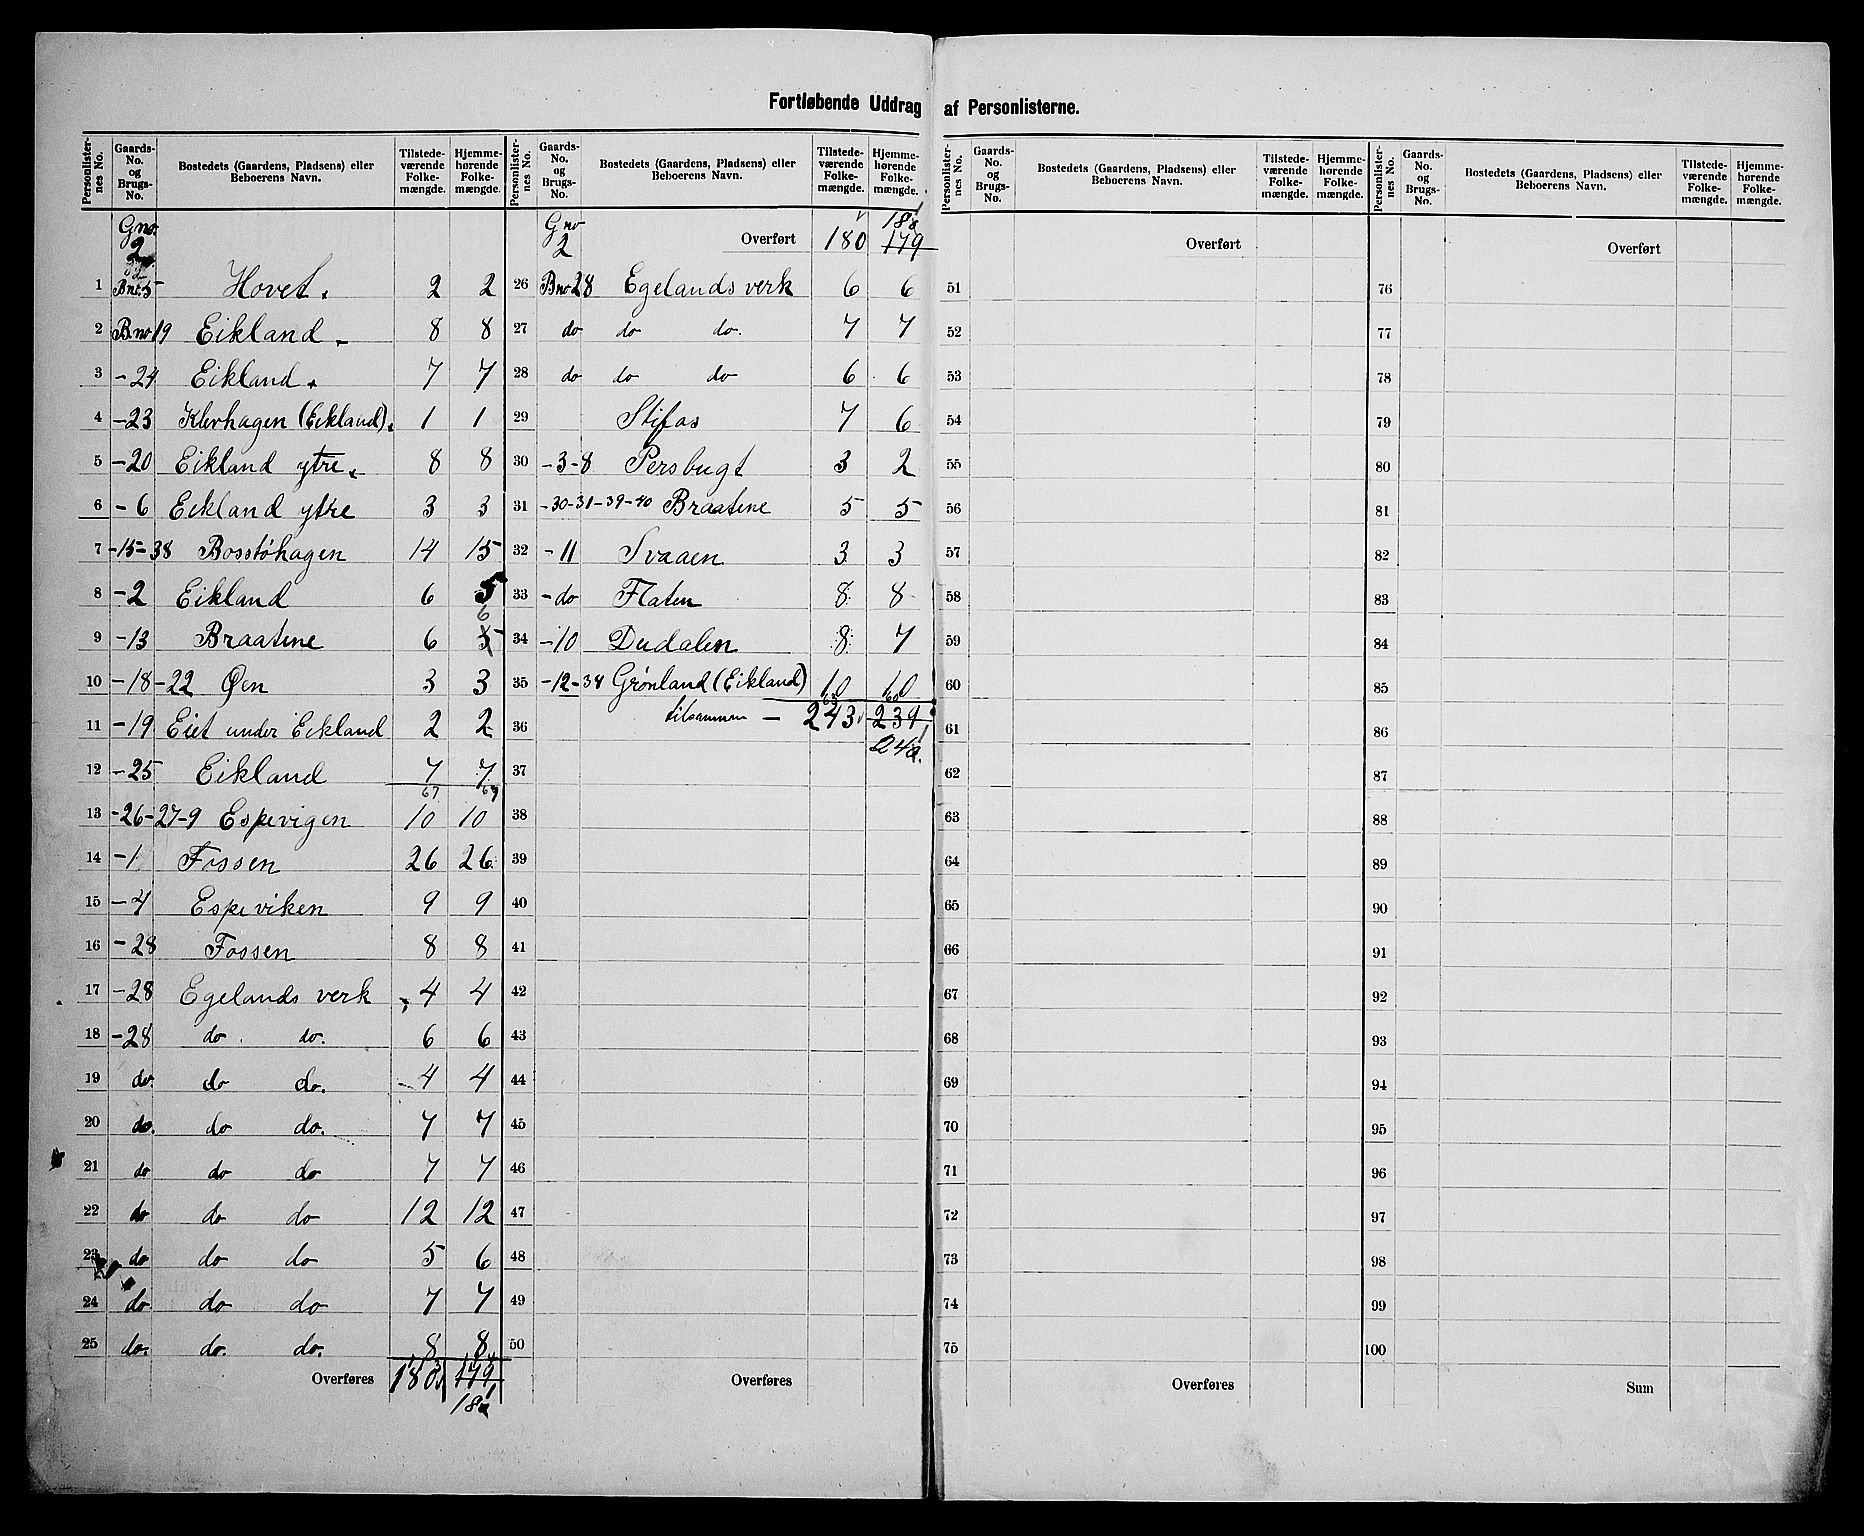 Fortløbende Uddrag af Personlisterne.
Personlisternes No. Gaards-No. og Brugs-No. Bostedets (Gaardens, Pladsens) eller Beboerens Navn. Tilstedeværende Folkemængde. Hjemmehørende Folkemængde.
Gno. 2
1 Bno. 5 Hovet. 2 2
2 Bno 19 Eikland 8 8
3 -24 Eikland. 7 7
4 -23 Klevhagen (Eikland). 1 1
5 -20 Eikland ytre. 8 8
6 -6 Eikland ytre 3 3
7 -15-38 Bosstøhagen 14 15
8 -2 Eikland 6 5
9 -13 Braatene 6 6 5
10 -18-22 Øen 3 3
11 -19 Eiet under Eikland 2 2
12 -25 Eikland 7 7
67 67
13 -26-27-9 Espevigen 10 10
14 -1 Fossen 26 26
15 -4 Espeviken 9 9
16 -28 Fossen 8 8
17 -28 Egelands verk 4 4
18 -28 do do. 6 6
19 do. do do. 4 4
20 do. do do. 7 7
21 do do do 7 7
22 do do do 12 12
23 do do do 5 6
24 do do do 7 7
25 do. do. do. 8 8
Overføres 180 179
180
Personlisternes No. Gaards-No. og Brugs-No. Bostedets (Gaardens, Pladsens) eller Beboerens Navn. Tilstedeværende Folkemængde. Hjemmehørende Folkemængde.
Gno 2 Overført 180 179
26 Bno 28 Egelands verk 6 6
27 do do do. 7 7
28 do do do 6 6
29 Stifos 7 6
30 -3-8 Persbugt 3 2
31 -30-31-39-40 Braatene 5 5
32 -11 Svaaen 3 3
33 -do Flaten 8 8
34 -10 Dudalen 8 7
35 -12-34 Grønland (Eikland) 10 10
63 60
36 tilsammen - 243 239
240.
37
38
39
40
41
42
43
44
45
46
47
48
49
50
Overføres
Personlisternes No. Gaards-No. og Brugs-No. Bostedets (Gaardens, Pladsens) eller Beboerens Navn. Tilstedeværende Folkemængde. Hjemmehørende Folkemængde.
Overført
51
52
53
54
55
56
57
58
59
60
61
62
63
64
65
66
67
68
69
70
71
72
73
74
75
Overføres
Personlisternes No. Gaards-No. og Brugs-No. Bostedets (Gaardens, Pladsens) eller Beboerens Navn. Tilstedeværende Folkemængde. Hjemmehørende Folkemængde.
Overført
76
77
78
79
80
81
82
83
84
85
86
87
88
89
90
91
92
93
94
95
96
97
98
99
100
Sum